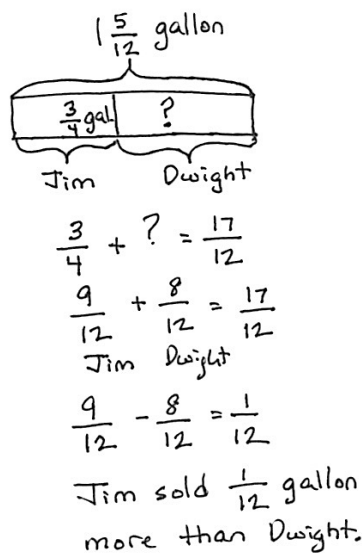 1 5/12 gallon
3/4 gal. ?
Jim Dwight
3/4 + ? = 17/12
9/12 + 8/12 = 17/12
Jim Dwight
9/12 - 8/12 = 1/12
Jim sold 1/12 gallon
more than Dwight.